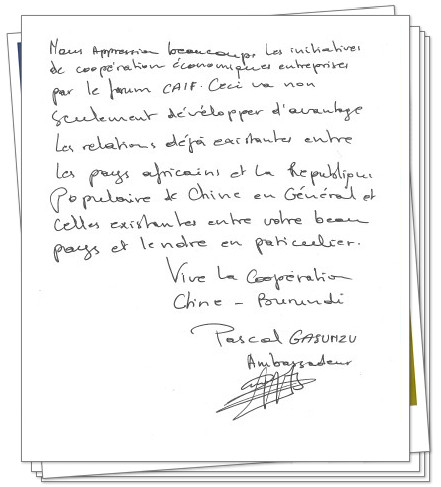 Nous Appression beaucoups les initiatives
de coopération économiques entreprises
par le forum CAIF. Ceci va non
seulement dévélopper d'avantage
les relations déjà existantes entre
les pays africains et la République
Populaire de Chine en Général et
celles existantes entre votre beau
pays et le notre en paticulier.
Vive la Coopération
Chine - Burundi
Pascal GASUNZU
Ambassadeur